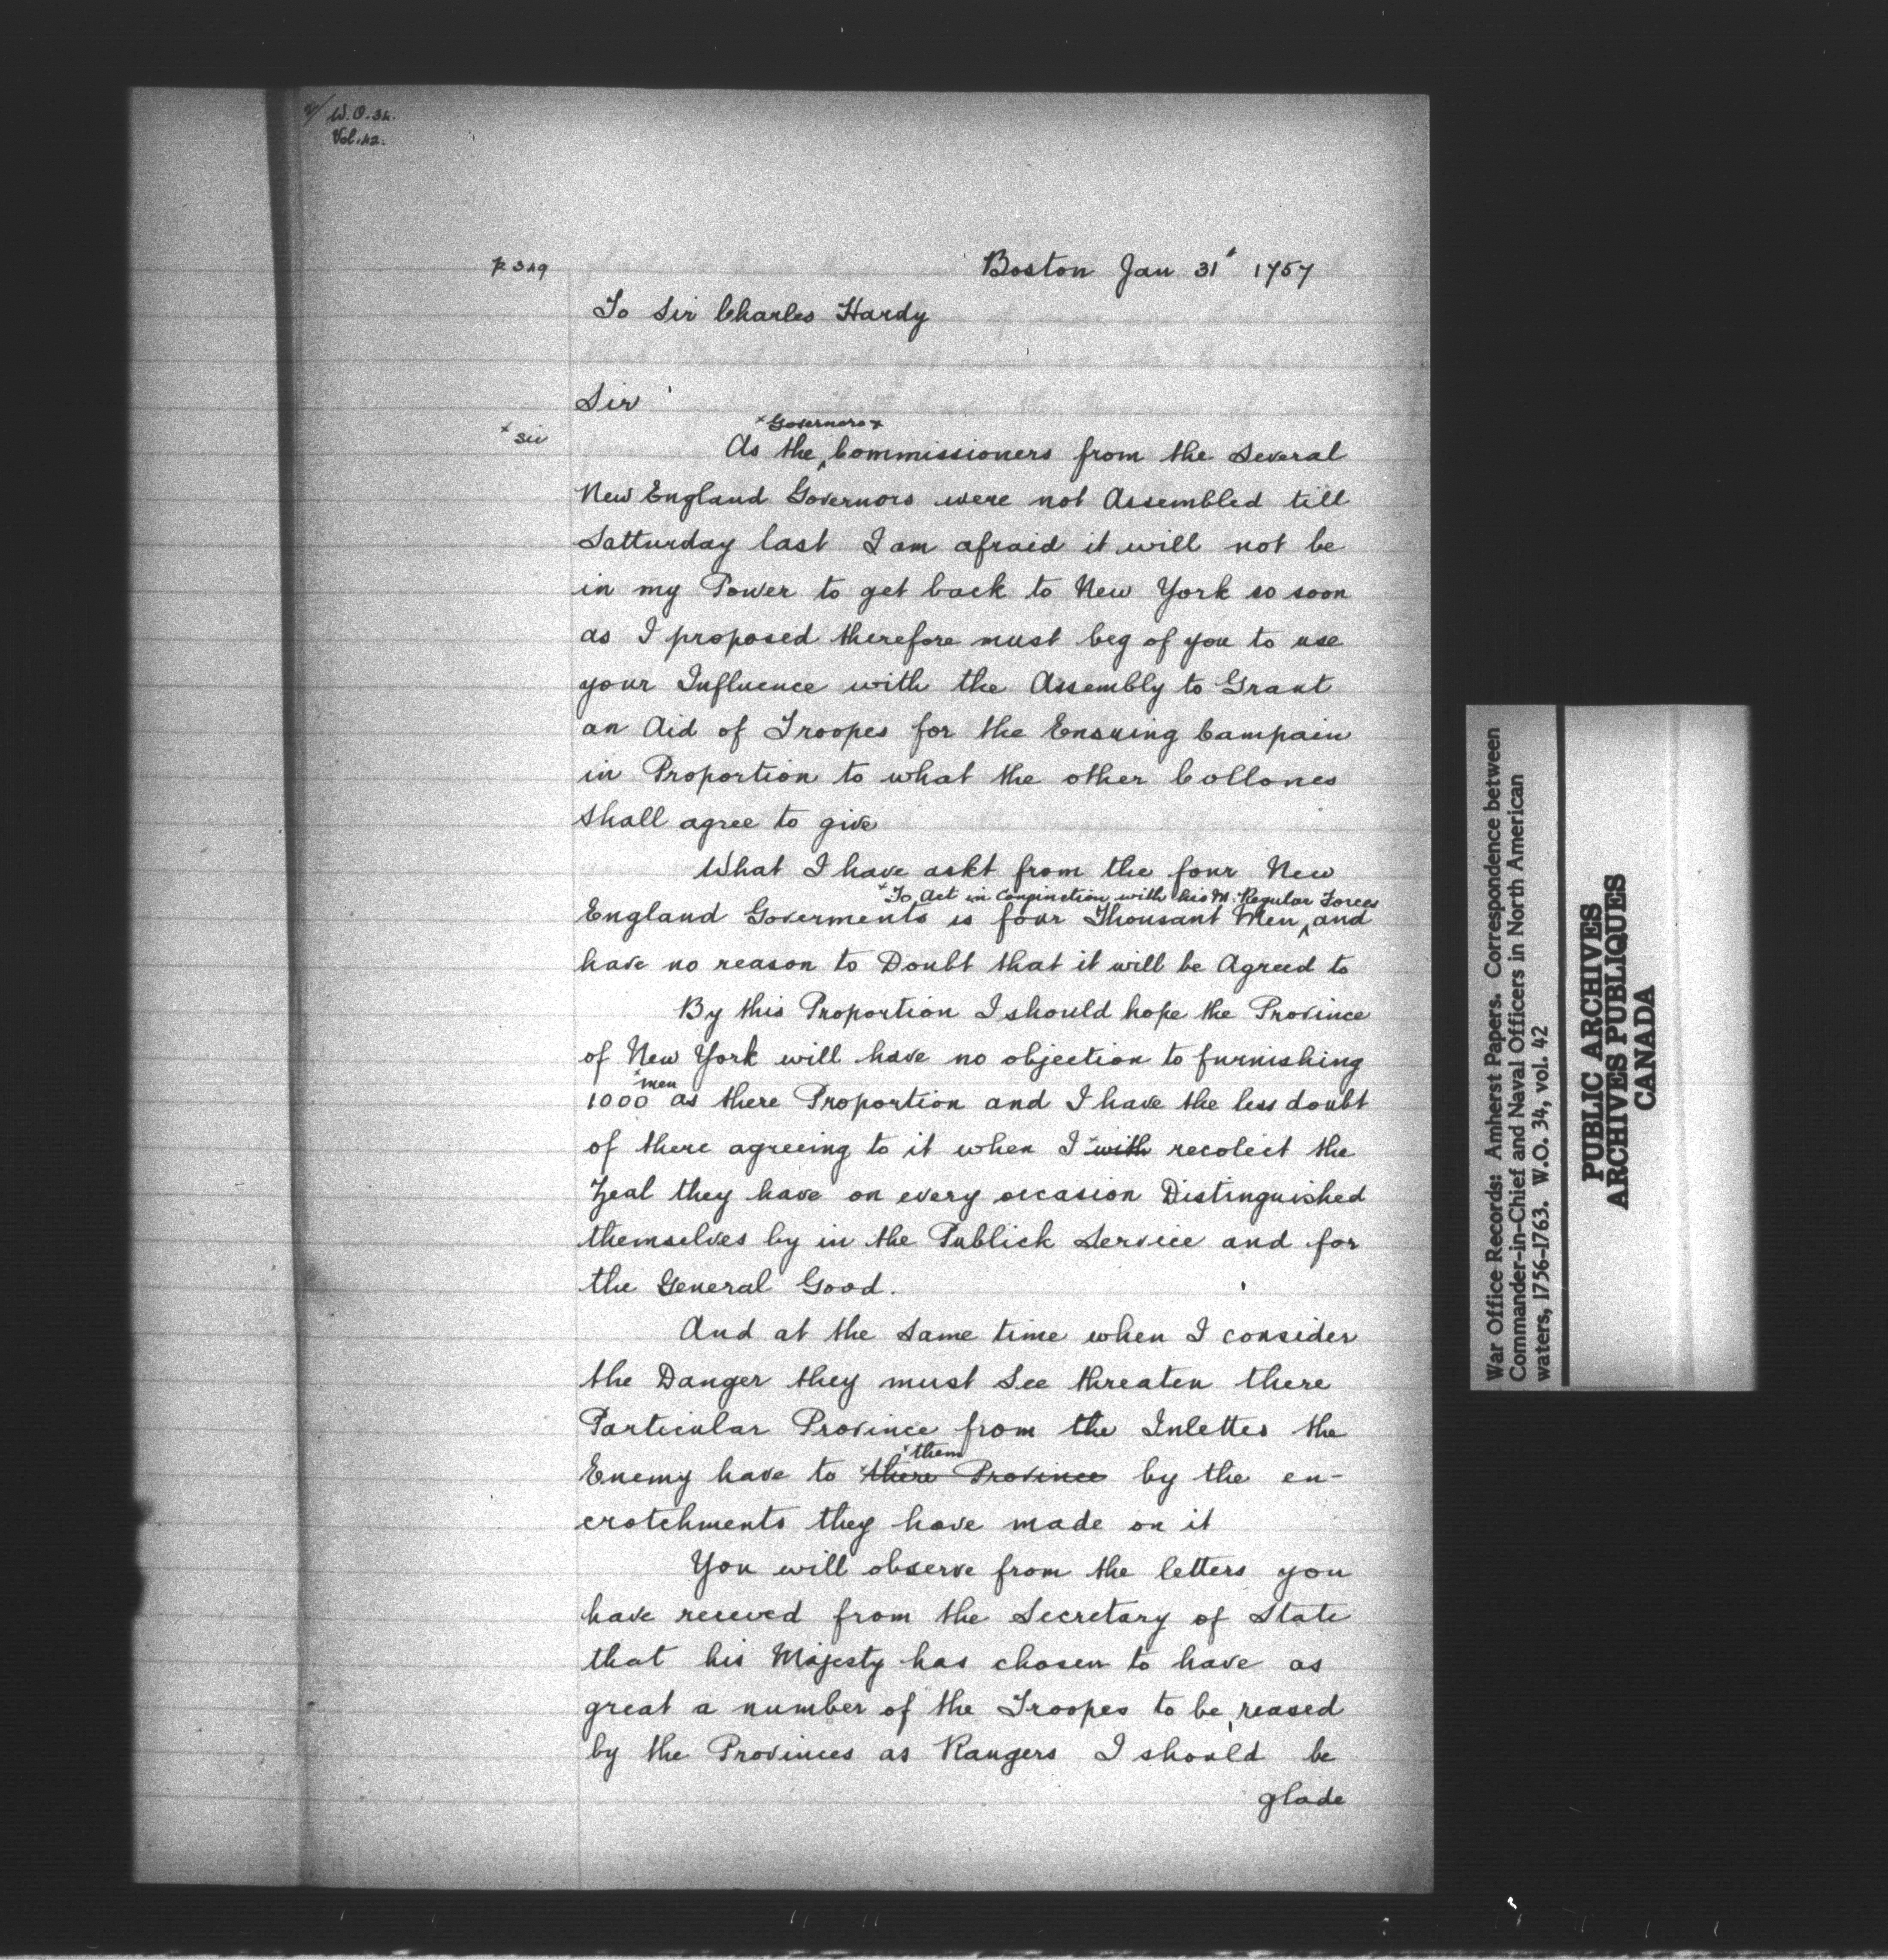 W.O. 34.
Vol. 42.
p 349
Boston Jan 31st 1757
To Sir Charles Hardy
Sir
x sic
x Governors &
As the ^ Commissioners from the Several
New England Governors were not Assembled till
Satturday last I am afraid it will not be
in my Power to get back to New York so soon
as I proposed therefore must beg of you to use
your Influence with the Assembly to Grant
an Aid of Troopes for the Ensuing Campain
in Proportion to what the other Collones
shall agree to give
What I have askt from the four New
x To Act in Conjinction with his M. Regular Forces
England Goverments is four Thousant Men ^ and
have no reason to Doubt that it will be Agreed to
By this Proportion I should hope the Province
of New York will have no objection to furnishing
x men
1000 as there Proportion and I have the less doubt
of there agreeing to it when I with recolect the
Zeal they have on every occasion Distinguished
themselves by in the Publick Service and for
the General Good.
And at the Same time when I consider
the Danger they must See threaten there
Particular Province from the Inlettes the
x them
Enemy have to there Province by the en-
crotchments they have made on it
You will observe from the letters you
have receved from the Secretary of State
that his Majesty has chosen to have as
great a number of the Troopes to be reased
by the Provinces as Rangers I should be
glade
War Office Records: Amherst Papers. Correspondence between
Commander-in-Chief and Naval Officers in North American
waters, 1756-1763. W.O. 34, vol. 42
PUBLIC ARCHIVES
ARCHIVES PUBLIQUES
CANADA